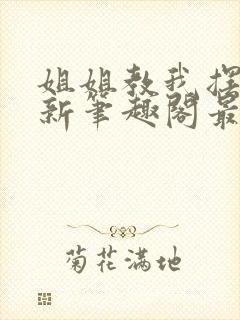 姐姐教我摆
新笔趣阁最
菊花满地